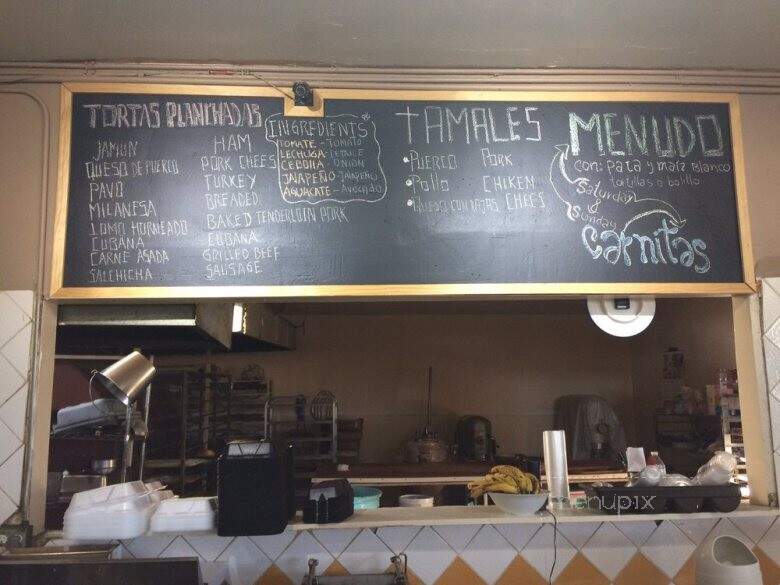 TORTAS PLANCHADAS
JAMON HAM
QUESO DE PUERCO PORK CHEES
PAVO TURKEY
MILANESA BREADED
LOMO HORNEADO BAKED TENDERLOIN PORK
CUBANA CUBANA
CARNE ASADA GRILLED BEEF
SALCHICHA SAUSAGE
INGREDIENTS
TOMATE - TOMATO
LECHUGA - LETUCE
CEBOLLA - ONION
JALAPEÑO - JALAPEÑO
AGUACATE - AVOCADO
TAMALES
PUERCO PORK
Pollo CHIKEN
QUESO CON RAJAS CHEES
MENUDO
con: pata y maiz Blanco
tortillas o bolillo
Saturday
&
Sunday
carnitas
MENUPIX